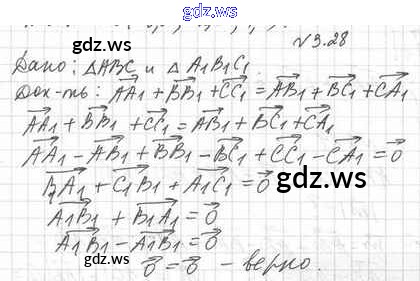 gdz.ws
№3.28
Дано: △ABC и △ A₁B₁C₁
Док-ть: AA₁ + BB₁ + CC₁ = AB₁ + BC₁ + CA₁
AA₁ + BB₁ + CC₁ = AB₁ + BC₁ + CA₁
AA₁ - AB₁ + BB₁ - BC₁ + CC₁ - CA₁ = 0
B₁A₁ + C₁B₁ + A₁C₁ = 0
gdz.ws
A₁B₁ + B₁A₁ = 0
A₁B₁ - A₁B₁ = 0
gdz.ws
0 = 0 - верно.